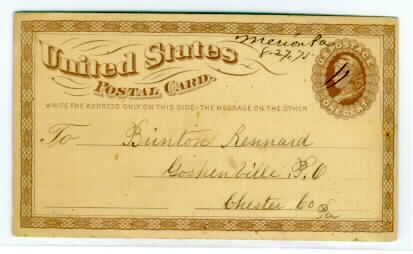 Merion Pa
8.27.75
United States
POSTAL CARD.
U.S. POSTAGE
ONE CENT
WRITE THE ADDRESS ONLY ON THIS SIDE - THE MESSAGE ON THE OTHER
To Brinton Kennard
Goshenville P.O
Chester Co
Pa